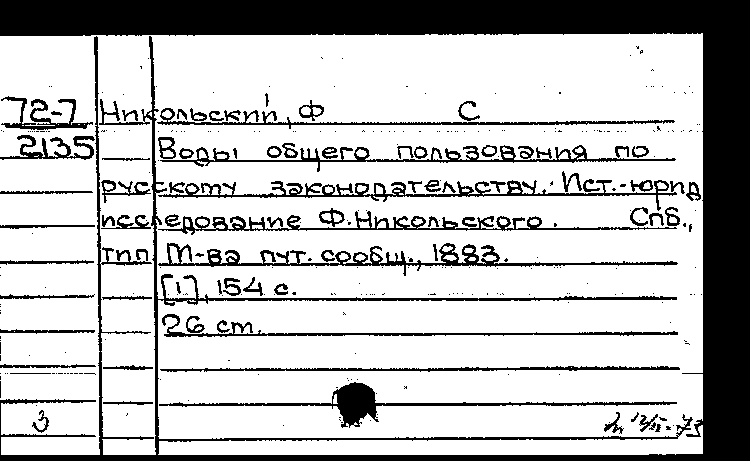 72-7 Никольский, Ф С
2135 Воды общего пользования по
русскому законодательству. Ист.-юрид
исследование Ф.Никольского. Спб.,
тип М-ва пут. сообщ., 1883.
[1], 154 с.
26 см.
3